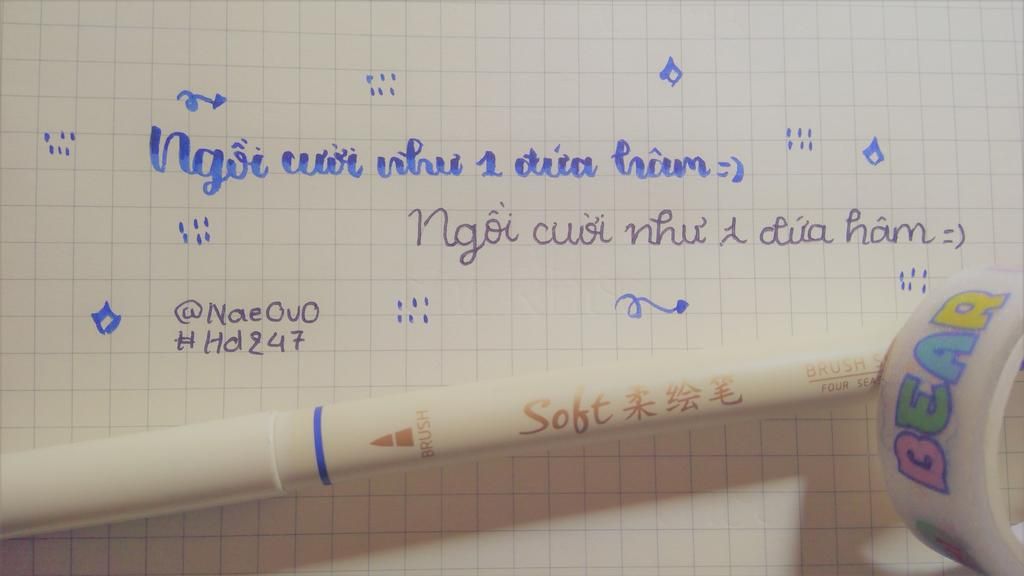 Ngồi cười như 1 đứa hâm =)
Ngồi cười như 1 đứa hâm =)
@NaeOuO
#Hd247
BRUSH
Soft 柔绘笔
BRUSH
FOUR
BEAR